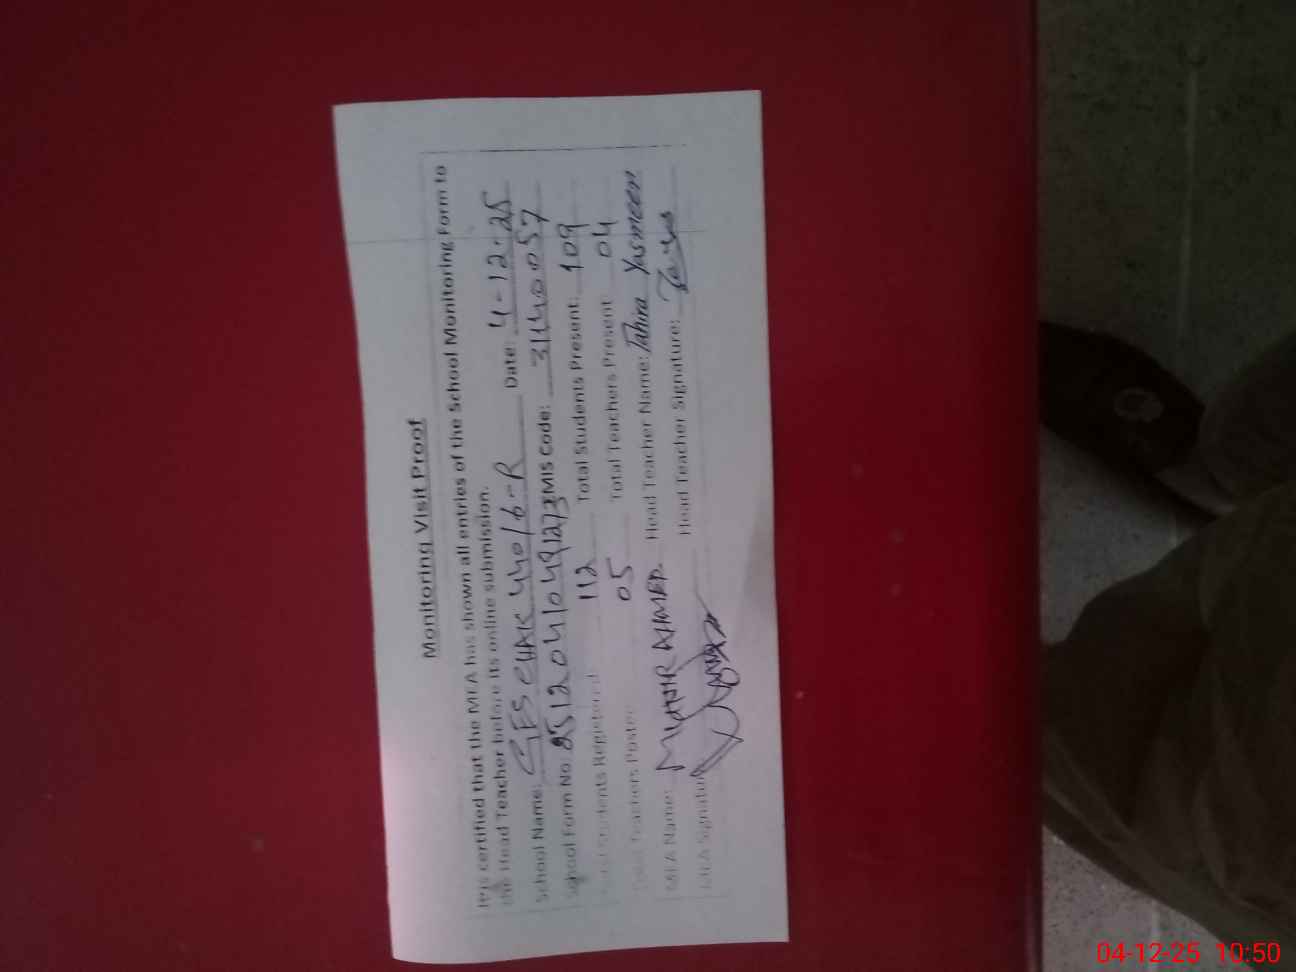 Monitoring Visit Proof
It is certified that the MEA has shown all entries of the School Monitoring Form to
the Head Teacher before its online submission.
School Name: GES CHAK 440/6-R Date: 4-12-25
School Form No. 25120410491273 EMIS Code: 31140057
Total Students Registered: 112 Total Students Present: 109
Total Teachers Posted: 05 Total Teachers Present 04
MEA Name: AHMED Head Teacher Name: Tahira Yasmeen
MEA Signature Head Teacher Signature:
04-12-25 10:50